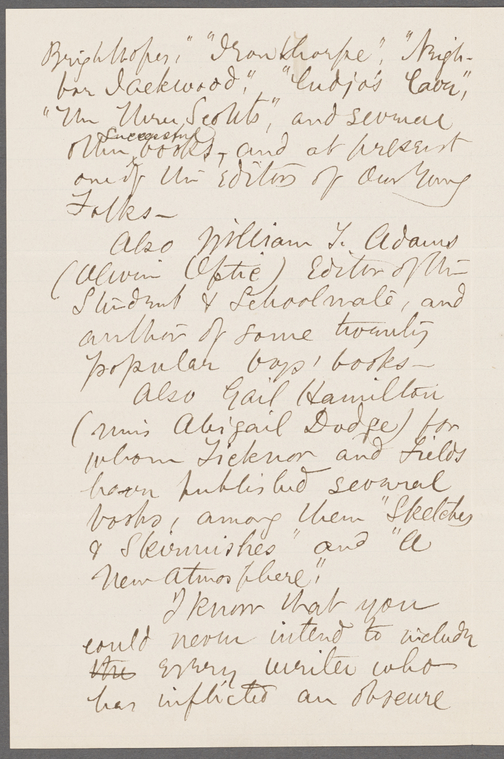 Brighthopes," "Ironthorpe", "Neigh-
bor Jackwood," "Cudjo's Cave",
"The Three Scouts", and several
successful
other books, and at present
one of the Editors of Our Young
Folks—
Also William T. Adams
(Oliver Optic) Editor of the
Student & Schoolmate, and
author of some twenty
popular boys' books—
Also Gail Hamilton
(Miss Abigail Dodge) for
whom Ticknor and Fields
have published several
books, among them "Sketches
& Skirmishes" and "A
New Atmosphere".
I know that you
could never intend to include
the every writer who
has inflicted an obscure